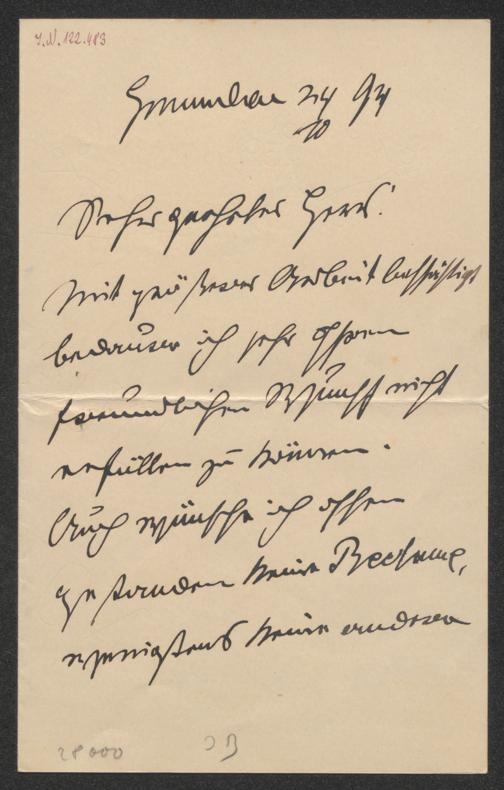 I.N. 122.483
Gmunden 24/10 94
Sehr geehrter Herr!
Mit größerer Arbeit beschäftigt
bedauere ich sehr Ihrem
freundlichen Wunsch nicht
erfüllen zu können.
Auch wünsche ich offen
gestanden keine Reclame,
wenigstens keine andere
28000